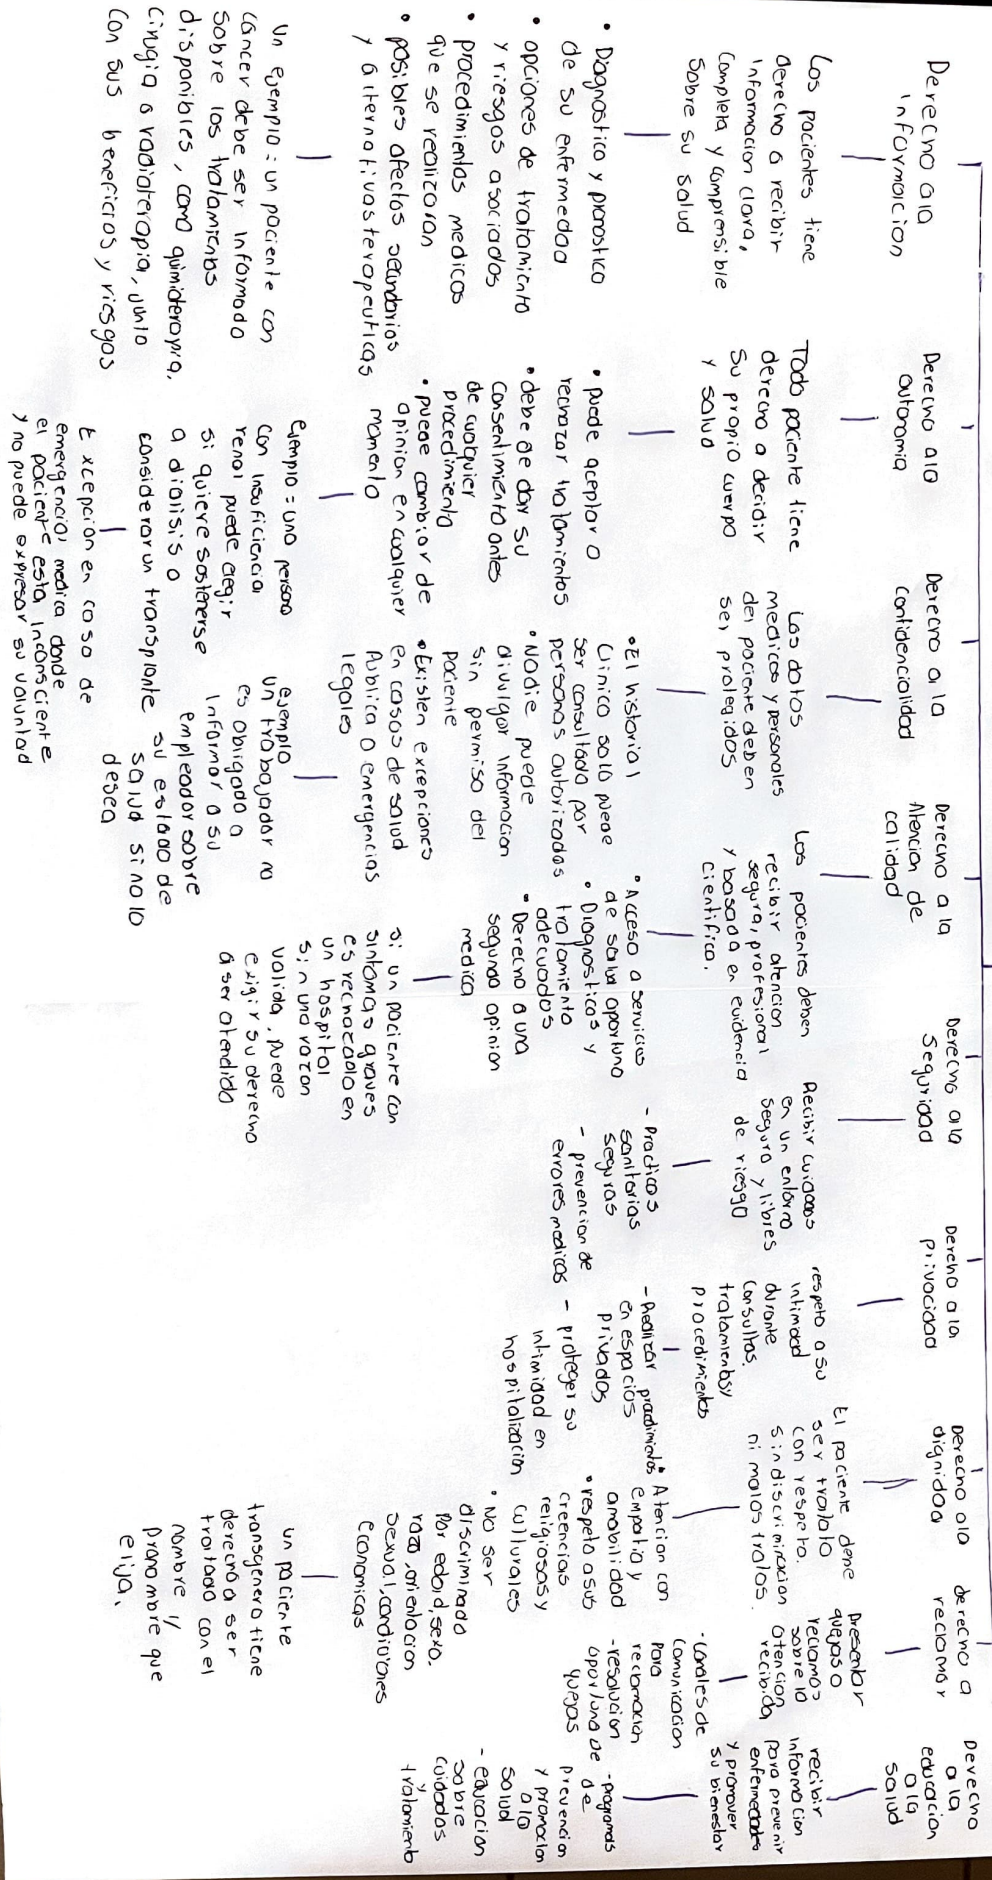 Derecho a la
informaicion
Los pacientes tiene
derecho a recibir
informacion clara,
completa y comprensible
sobre su salud
• Diagnostico y pronostico
de su enfermedad
• opciones de tratamiento
y riesgos asociados
• procedimientos medicos
que se realizaran
• posibles afectos secundarios
y alternativas terapeuticas
Un ejemplo = un paciente con
cancer debe ser informado
sobre los tratamientos
disponibles, como quimioterapia,
cirugia o radioterapia, junto
con sus beneficios y riesgos
Derecho a la
autonomia
Todo paciente tiene
derecho a decidir
su propio cuerpo
y salud
• puede aceptar o
rechazar tratamientos
• debe de dar su
consentimiento antes
de cualquier
procedimiento
• puede cambiar de
opinion en cualquier
momento
ejemplo = una persona
con insuficiencia
renal puede elegir
si quiere sostenerse
a dialisis o
considerar un transplante
Excepción en caso de
emergencias medica donde
el paciente esta inconsciente
y no puede expresar su voluntad
Derecho a la
Confidencialidad
Los datos
medicos y personales
del paciente deben
ser protegidos
• El historial
clinico solo puede
ser consultada por
personas autorizadas
• Nadie puede
divulgar informacion
sin permiso del
paciente
• Existen excepciones
en casos de salud
Publica o emergencias
legales
ejemplo
un trabajador no
es obligado a
informar a su
empleador sobre
su estado de
salud si no lo
desea
Derecho a la
Atencion de
calidad
Los pacientes deben
recibir atencion
segura, profesional
y basada en evidencia
cientifica.
• Acceso a servicios
de salud oportuno
• Diagnosticos y
tratamiento
adecuados
• Derecho a una
segunda opinion
medica
si un paciente con
sintomas graves
es rechazado en
un hospital
sin una razon
valida, puede
exigir su derecho
a ser atendido
Derecho a la
Seguridad
Recibir cuidados
en un entorno
seguro y libres
de riesgo
- Practicas
sanitarias
seguras
- prevencion de
errores medicos
Dereho a la
privacidad
respeto a su
intimidad
durante
consultas,
tratamientos y
procedimientos
- Realizar procedimientos
en espacios
privados
- proteger su
intimidad en
hospitalizacion
Derecho a la
dignidad
El paciente deme
ser tratato
con respeto.
sin discriminacion
ni malos tratos.
• Atencion con
empatia y
amabilidad
• respeto a sus
creencias
religiosas y
culturales
• No ser
discriminado
por edad, sexo,
raza, orientacion
sexual, condiciones
economicas
un paciente
transgenero tiene
derecho a ser
traitado con el
nombre y
pronombre que
elija.
derecho a
reclamar
Presentar
quejas o
reclamos
sobre la
atencion
recibida
- Canales de
comunicacion
para
reclamacion
- resolucion
oportuna de
quejas
Derecho
a la
educacion
a la
salud
recibir
informacion
para prevenir
enfermedades
y promover
su bienestar
- programas
de
prevencion
y promocion
a la
salud
- educacion
sobre
cuidados
y
tratamiento